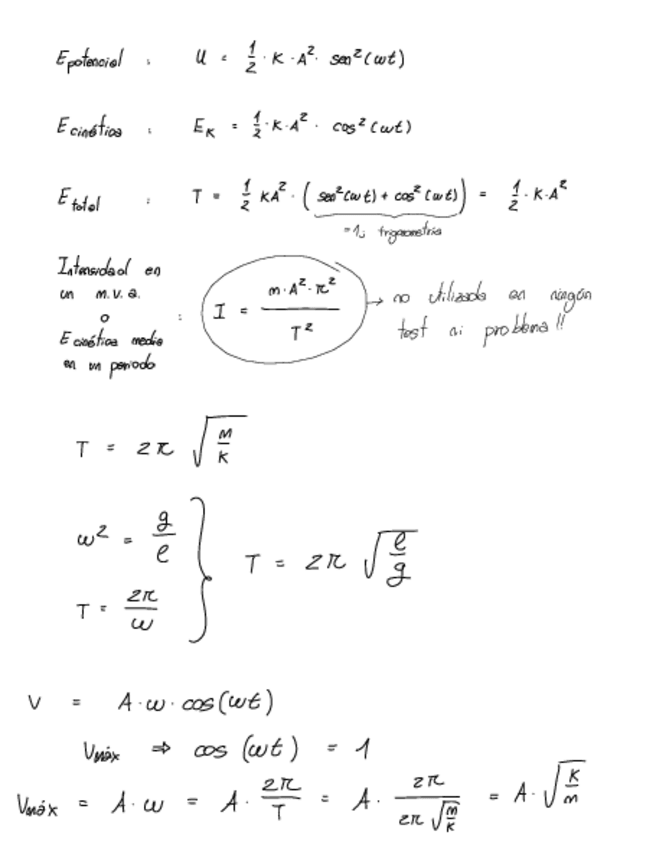 Epotencial : U = 1/2 · K · A² · sen²(ωt)
Ecinética : E_K = 1/2 · K · A² · cos²(ωt)
Etotal : T = 1/2 KA² · (sen²(ωt) + cos²(ωt)) = 1/2 · K · A²
=1; trigometria
Intensidad en
un m.v.a.
o
Ecinética media
en un periodo
: I = m · A² · π² / T²
→ no utilizada en ningún
test ni problema!!
T = 2π √(m/K)
ω² = g/ℓ
T = 2π/ω
} T = 2π √(ℓ/g)
V = A · ω · cos(ωt)
Vmáx ⇒ cos (ωt) = 1
Vmáx = A · ω = A · 2π/T = A · 2π/(2π √(m/K)) = A · √(K/m)